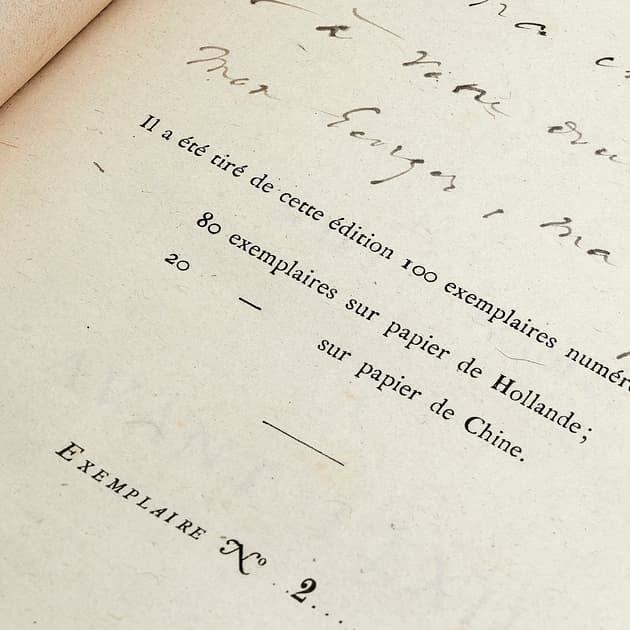 à votre
mon Georges, ma
Il a été tiré de cette édition 100 exemplaires numéro
80 exemplaires sur papier de Hollande;
20 — sur papier de Chine.
EXEMPLAIRE Nº ..2....